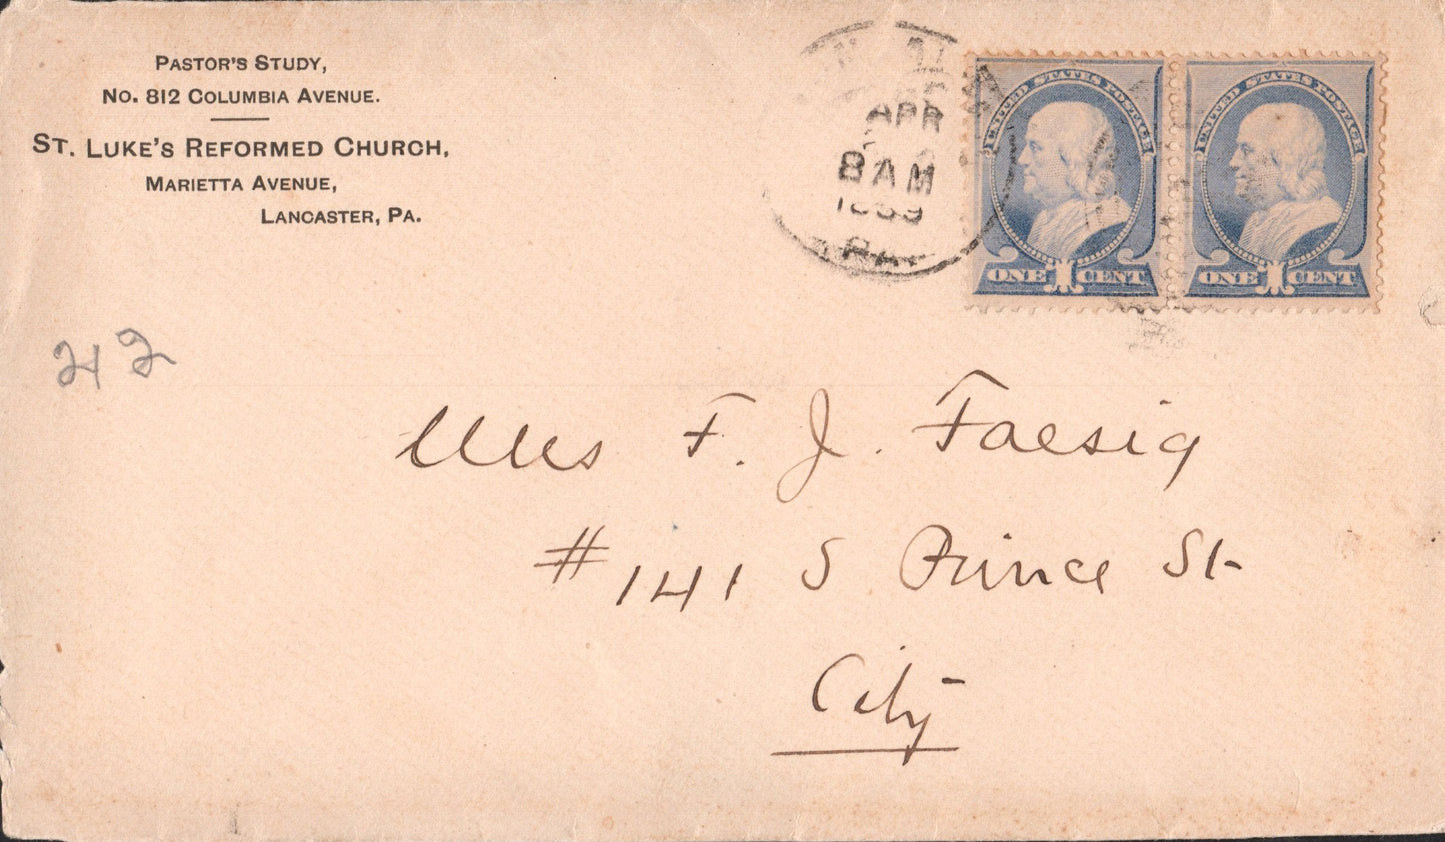 PASTOR'S STUDY,
NO. 812 COLUMBIA AVENUE.
ST. LUKE'S REFORMED CHURCH,
MARIETTA AVENUE,
LANCASTER, PA.
APR
8 AM
PA
UNITED STATES POSTAGE
ONE CENT
UNITED STATES POSTAGE
ONE CENT
212
Mrs F. J. Faesig
#141 S Prince St
City